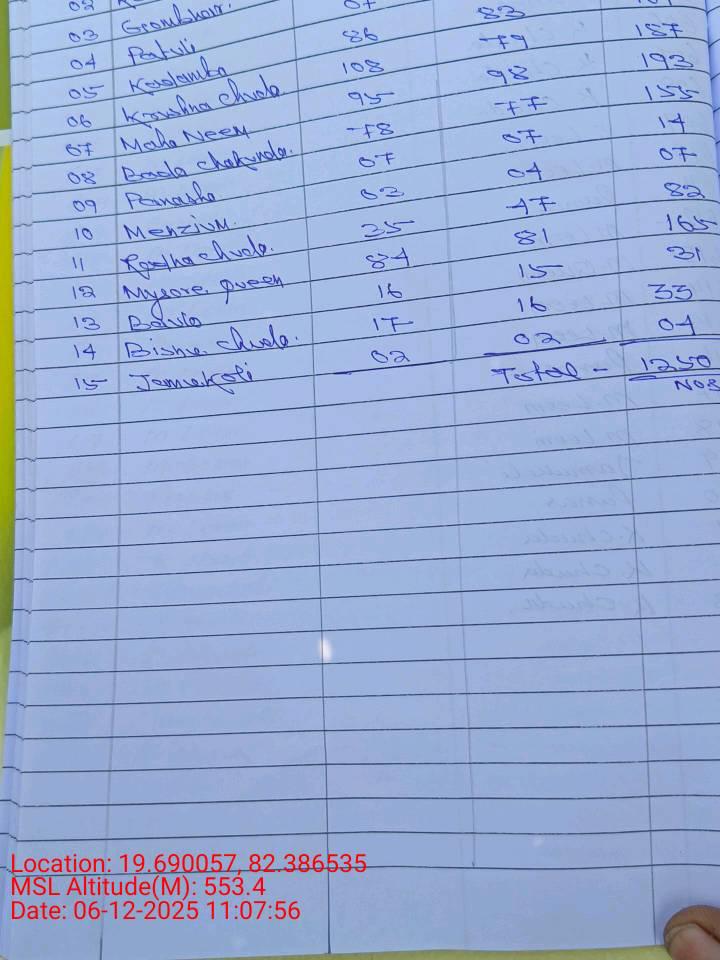 03 Grambhari
04 Patuli 07
05 Kadamba 86 83
06 Krushna chuda 108 79 187
07 Maha Neem 95 98 193
08 Bada chakunda. 78 77 155
09 Panasha 07 07 14
10 Menzium. 03 04 07
11 Radha chuda. 35 47 82
12 Mysore queen 84 81 165
13 Baula 16 15 31
14 Bisnu chuda. 17 16 33
15 Jamukoli 02 02 04
Total - 1250
Nos
Location: 19.690057, 82.386535
MSL Altitude(M): 553.4
Date: 06-12-2025 11:07:56